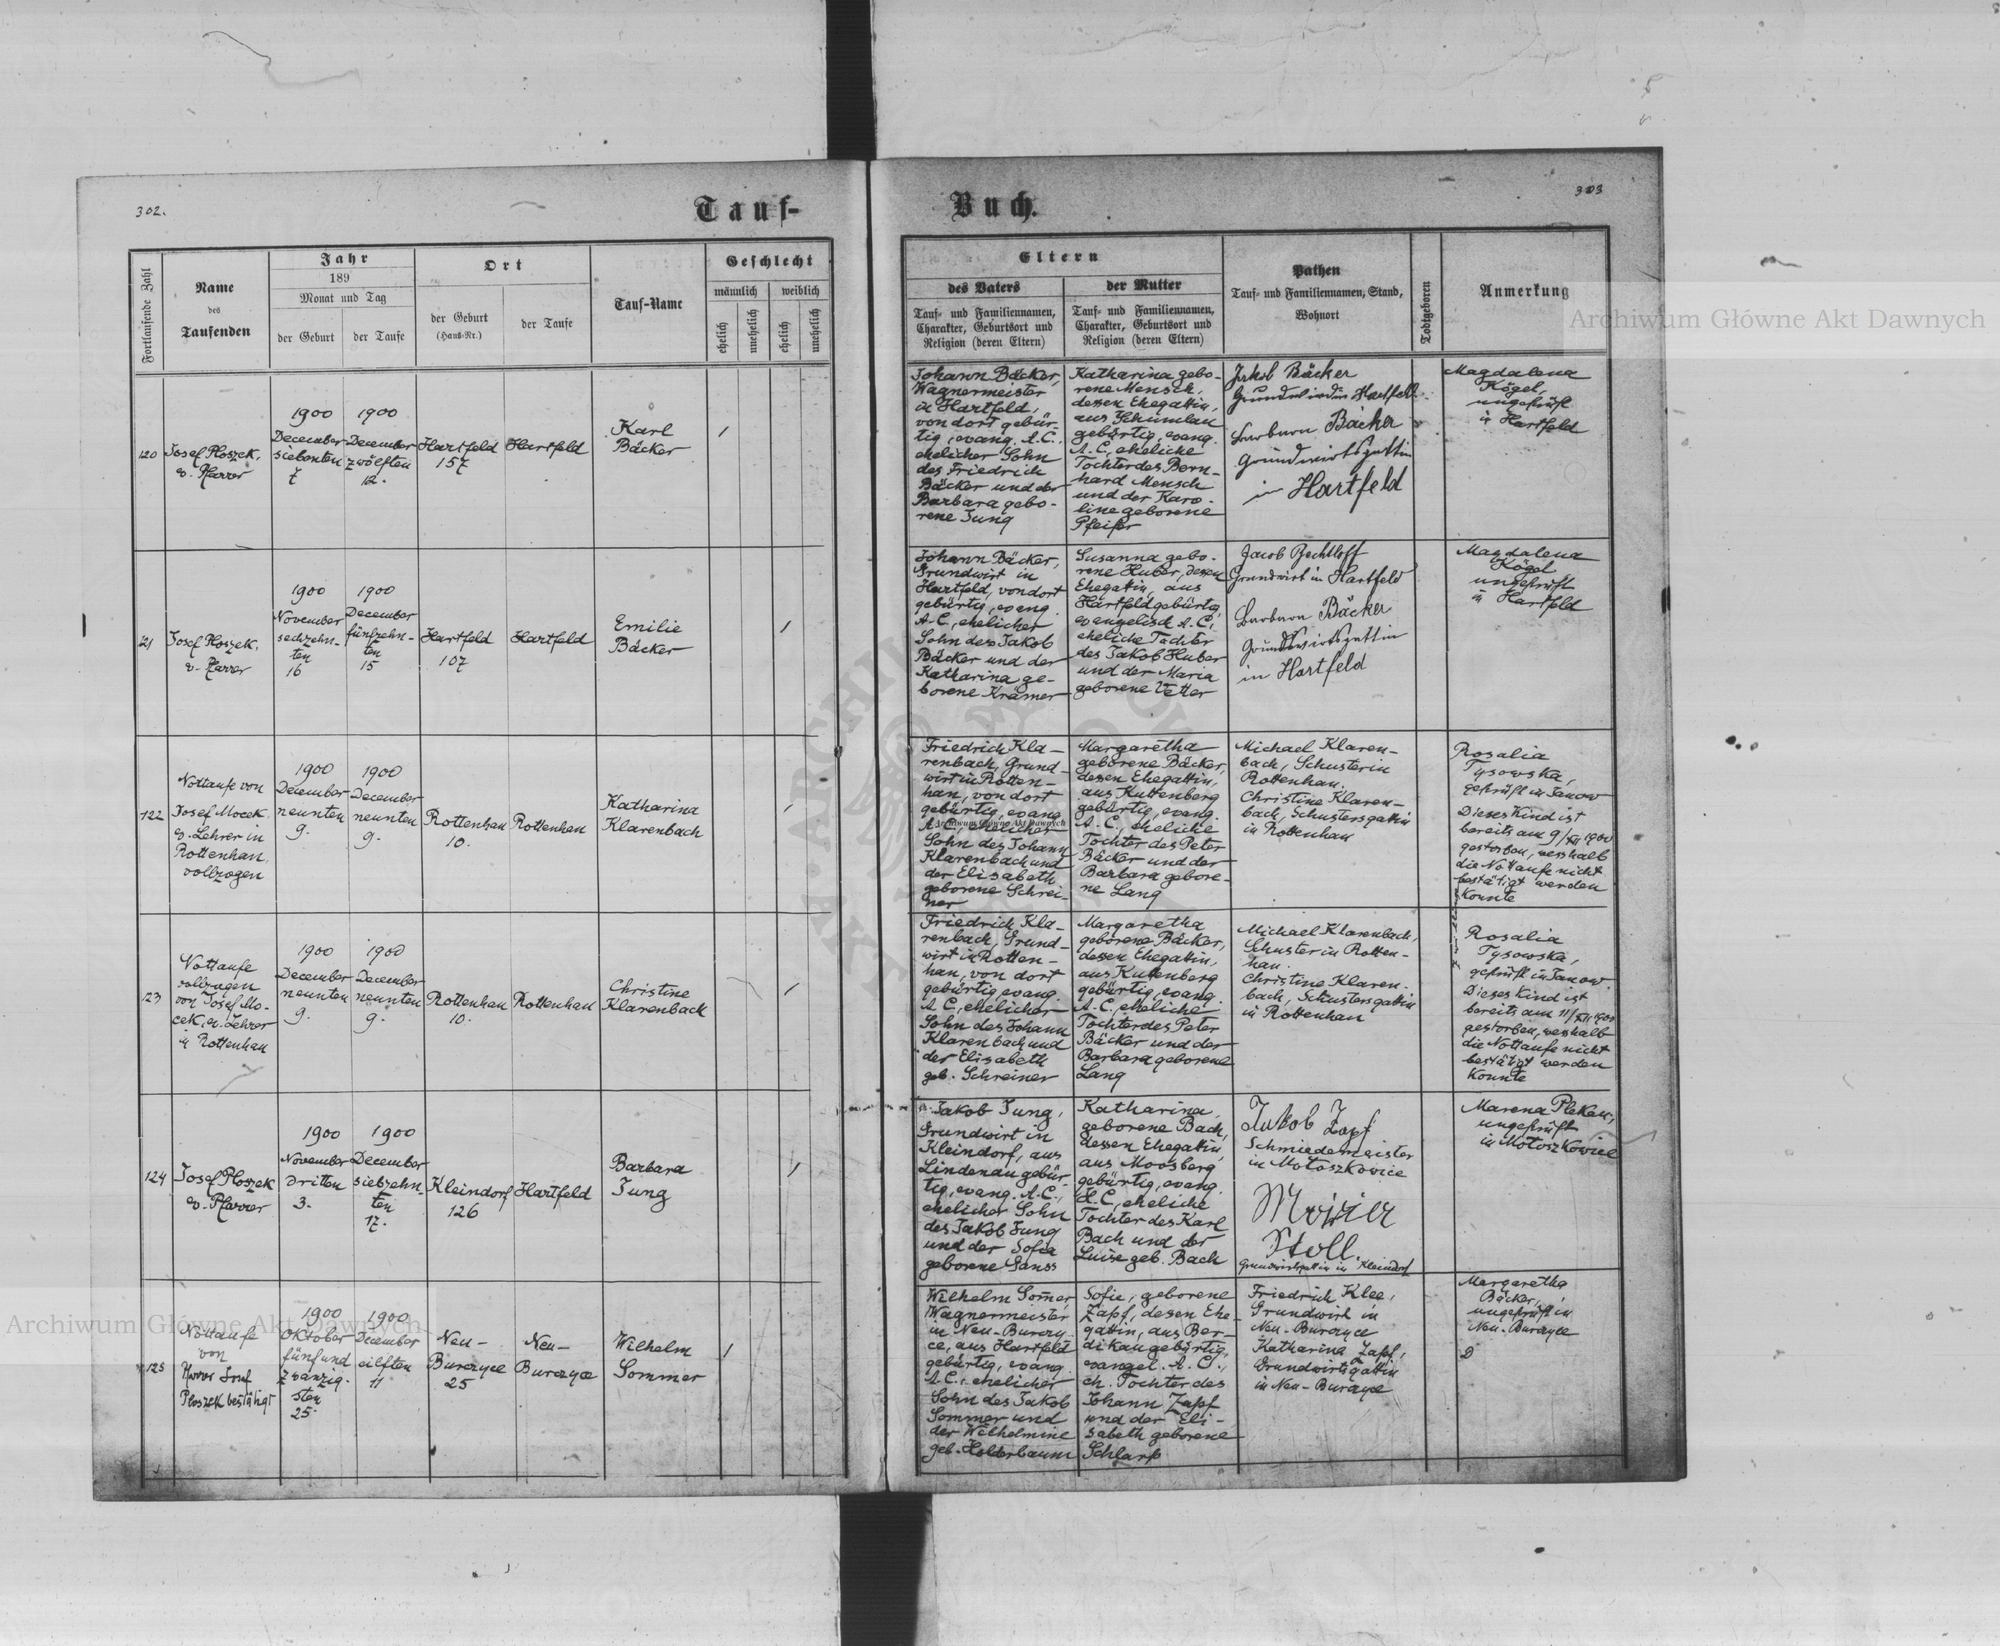 302.
Tauf-
Buch.
303
Fortlaufende Zahl
Name
des
Taufenden
Jahr
189
Monat und Tag
der Geburt
der Taufe
Ort
der Geburt
(Haus-Nr.)
der Taufe
Tauf-Name
Geschlecht
männlich
weiblich
ehelich
unehelich
ehelich
unehelich
Eltern
des Vaters
Tauf- und Familiennamen,
Charakter, Geburtsort und
Religion (deren Eltern)
der Mutter
Tauf- und Familiennamen,
Charakter, Geburtsort und
Religion (deren Eltern)
Pathen
Tauf- und Familiennamen, Stand,
Wohnort
Todtgeboren
Anmerkung
Archiwum Główne Akt Dawnych
120
Josef Ploszek,
ev. Pfarrer
1900
December
siebenten
7
1900
December
zwölften
12.
Hartfeld
157
Hartfeld
Karl
Bäcker
Johann Bäcker,
Wagnermeister
in Hartfeld,
von dort gebür-
tig, evang. A.C.,
ehelicher Sohn
des Friedrich
Bäcker und der
Barbara gebo-
rene Jung
Katharina gebo-
rene Mensch,
dessen Ehegattin,
aus Schumlau
gebürtig, evang.
A.C., eheliche
Tochter des Bern-
hard Mensch
und der Karo-
line geborene
Pfeifer
Jakob Bäcker
Grundwirt in Hartfeld
Barbara Bäcker
Grundwirtsgattin
in Hartfeld
Magdalena
Kögel,
ungeprüft
in Hartfeld
121
Josef Ploszek,
ev. Pfarrer
1900
November
sechzehn-
ten
16
1900
December
fünfzehn-
ten
15
Hartfeld
107
Hartfeld
Emilie
Bäcker
Johann Bäcker,
Grundwirt in
Hartfeld, von dort
gebürtig, evang.
A.C., ehelicher
Sohn des Jakob
Bäcker und der
Katharina ge-
borene Kramer
Susanna gebo-
rene Huber, dessen
Ehegattin, aus
Hartfeld gebürtig,
evangelisch A.C.,
eheliche Tochter
des Jakob Huber
und der Maria
geborene Vetter
Jacob Bechtloff
Grundwirt in Hartfeld
Barbara Bäcker
Grundwirtsgattin
in Hartfeld
Magdalena
Kögel
ungeprüft
in Hartfeld
122
Nottaufe von
Josef Mocek
ev. Lehrer in
Rottenhan
vollzogen
1900
December
neunten
9.
1900
December
neunten
9.
Rottenhan
10.
Rottenhan
Katharina
Klarenbach
Friedrich Kla-
renbach, Grund-
wirt in Rotten-
han, von dort
gebürtig, evang.
A.C., ehelicher
Sohn des Johann
Klarenbach und
der Elisabeth
geborene Schrei-
ner
Margaretha
geborene Bäcker,
dessen Ehegattin,
aus Kuttenberg
gebürtig, evang.
A.C., eheliche
Tochter des Peter
Bäcker und der
Barbara gebore-
ne Lang
Michael Klaren-
bach, Schuster in
Rottenhan.
Christine Klaren-
bach, Schustersgattin
in Rottenhan
Rosalia
Tysowska,
geprüft in Janow
Dieses Kind ist
bereits am 9/XII 1900
gestorben, wesshalb
die Nottaufe nicht
bestätigt werden
konnte
123
Nottaufe
vollzogen
von Josef Mo-
cek, ev. Lehrer
in Rottenhan
1900
December
neunten
9.
1900
December
neunten
9.
Rottenhan
10.
Rottenhan
Christine
Klarenbach
Friedrich Kla-
renbach, Grund-
wirt in Rotten-
han, von dort
gebürtig, evang.
A.C., ehelicher
Sohn des Johann
Klarenbach und
der Elisabeth
geb. Schreiner
Margaretha
geborene Bäcker,
dessen Ehegattin,
aus Kuttenberg
gebürtig, evang.
A.C., eheliche
Tochter des Peter
Bäcker und der
Barbara geborene
Lang
Michael Klarenbach,
Schuster in Rotten-
han.
Christine Klaren-
bach, Schustersgattin
in Rottenhan
Rosalia
Tysowska,
geprüft in Janow.
Dieses Kind ist
bereits am 11/XII 1900
gestorben, wesshalb
die Nottaufe nicht
bestätigt werden
konnte
124
Josef Ploszek
ev. Pfarrer
1900
November
dritten
3.
1900
December
siebzehn-
ten
17.
Kleindorf
126
Hartfeld
Barbara
Jung
Jakob Jung,
Grundwirt in
Kleindorf, aus
Lindenau gebür-
tig, evang. A.C.,
ehelicher Sohn
des Jakob Jung
und der Sofie
geborene Ganss
Katharina,
geborene Bach,
dessen Ehegattin,
aus Moosberg
gebürtig, evang.
H.C., eheliche
Tochter des Karl
Bach und der
Luise geb. Bach
Jakob Zapf
Schmiedemeister
in Mołoszkowice
Maria
Stoll.
Grundwirtsgattin in Kleindorf
ungeprüft
in Mołoszkowice
125
Nottaufe
von
Pfarrer Josef
Ploszek bestätigt
1900
Oktober
fünfund
zwanzig-
sten
25.
1900
December
eilften
11
Neu-
Burczyce
25
Neu-
Burczyce
Wilhelm
Sommer
Wilhelm Somer
Wagnermeister
in Neu-Burczy-
ce, aus Hartfeld
gebürtig, evang.
A.C., ehelicher
Sohn des Jakob
Sommer und
der Wilhelmine
geb. Holderbaum
Sofie, geborene
Zapf, dessen Ehe-
gattin, aus Ber-
dikau gebürtig,
evangel. A.C.,
eh. Tochter des
Johann Zapf
und der Eli-
sabeth geborene
Schlarp
Friedrich Klee,
Grundwirt in
Neu-Burczyce
Katharina Zapf,
Grundwirtsgattin
in Neu-Burczyce
Margaretha
Bäcker,
ungeprüft in
Neu-Burczyce
Archiwum Główne Akt Dawnych
Archiwum Główne Akt Dawnych